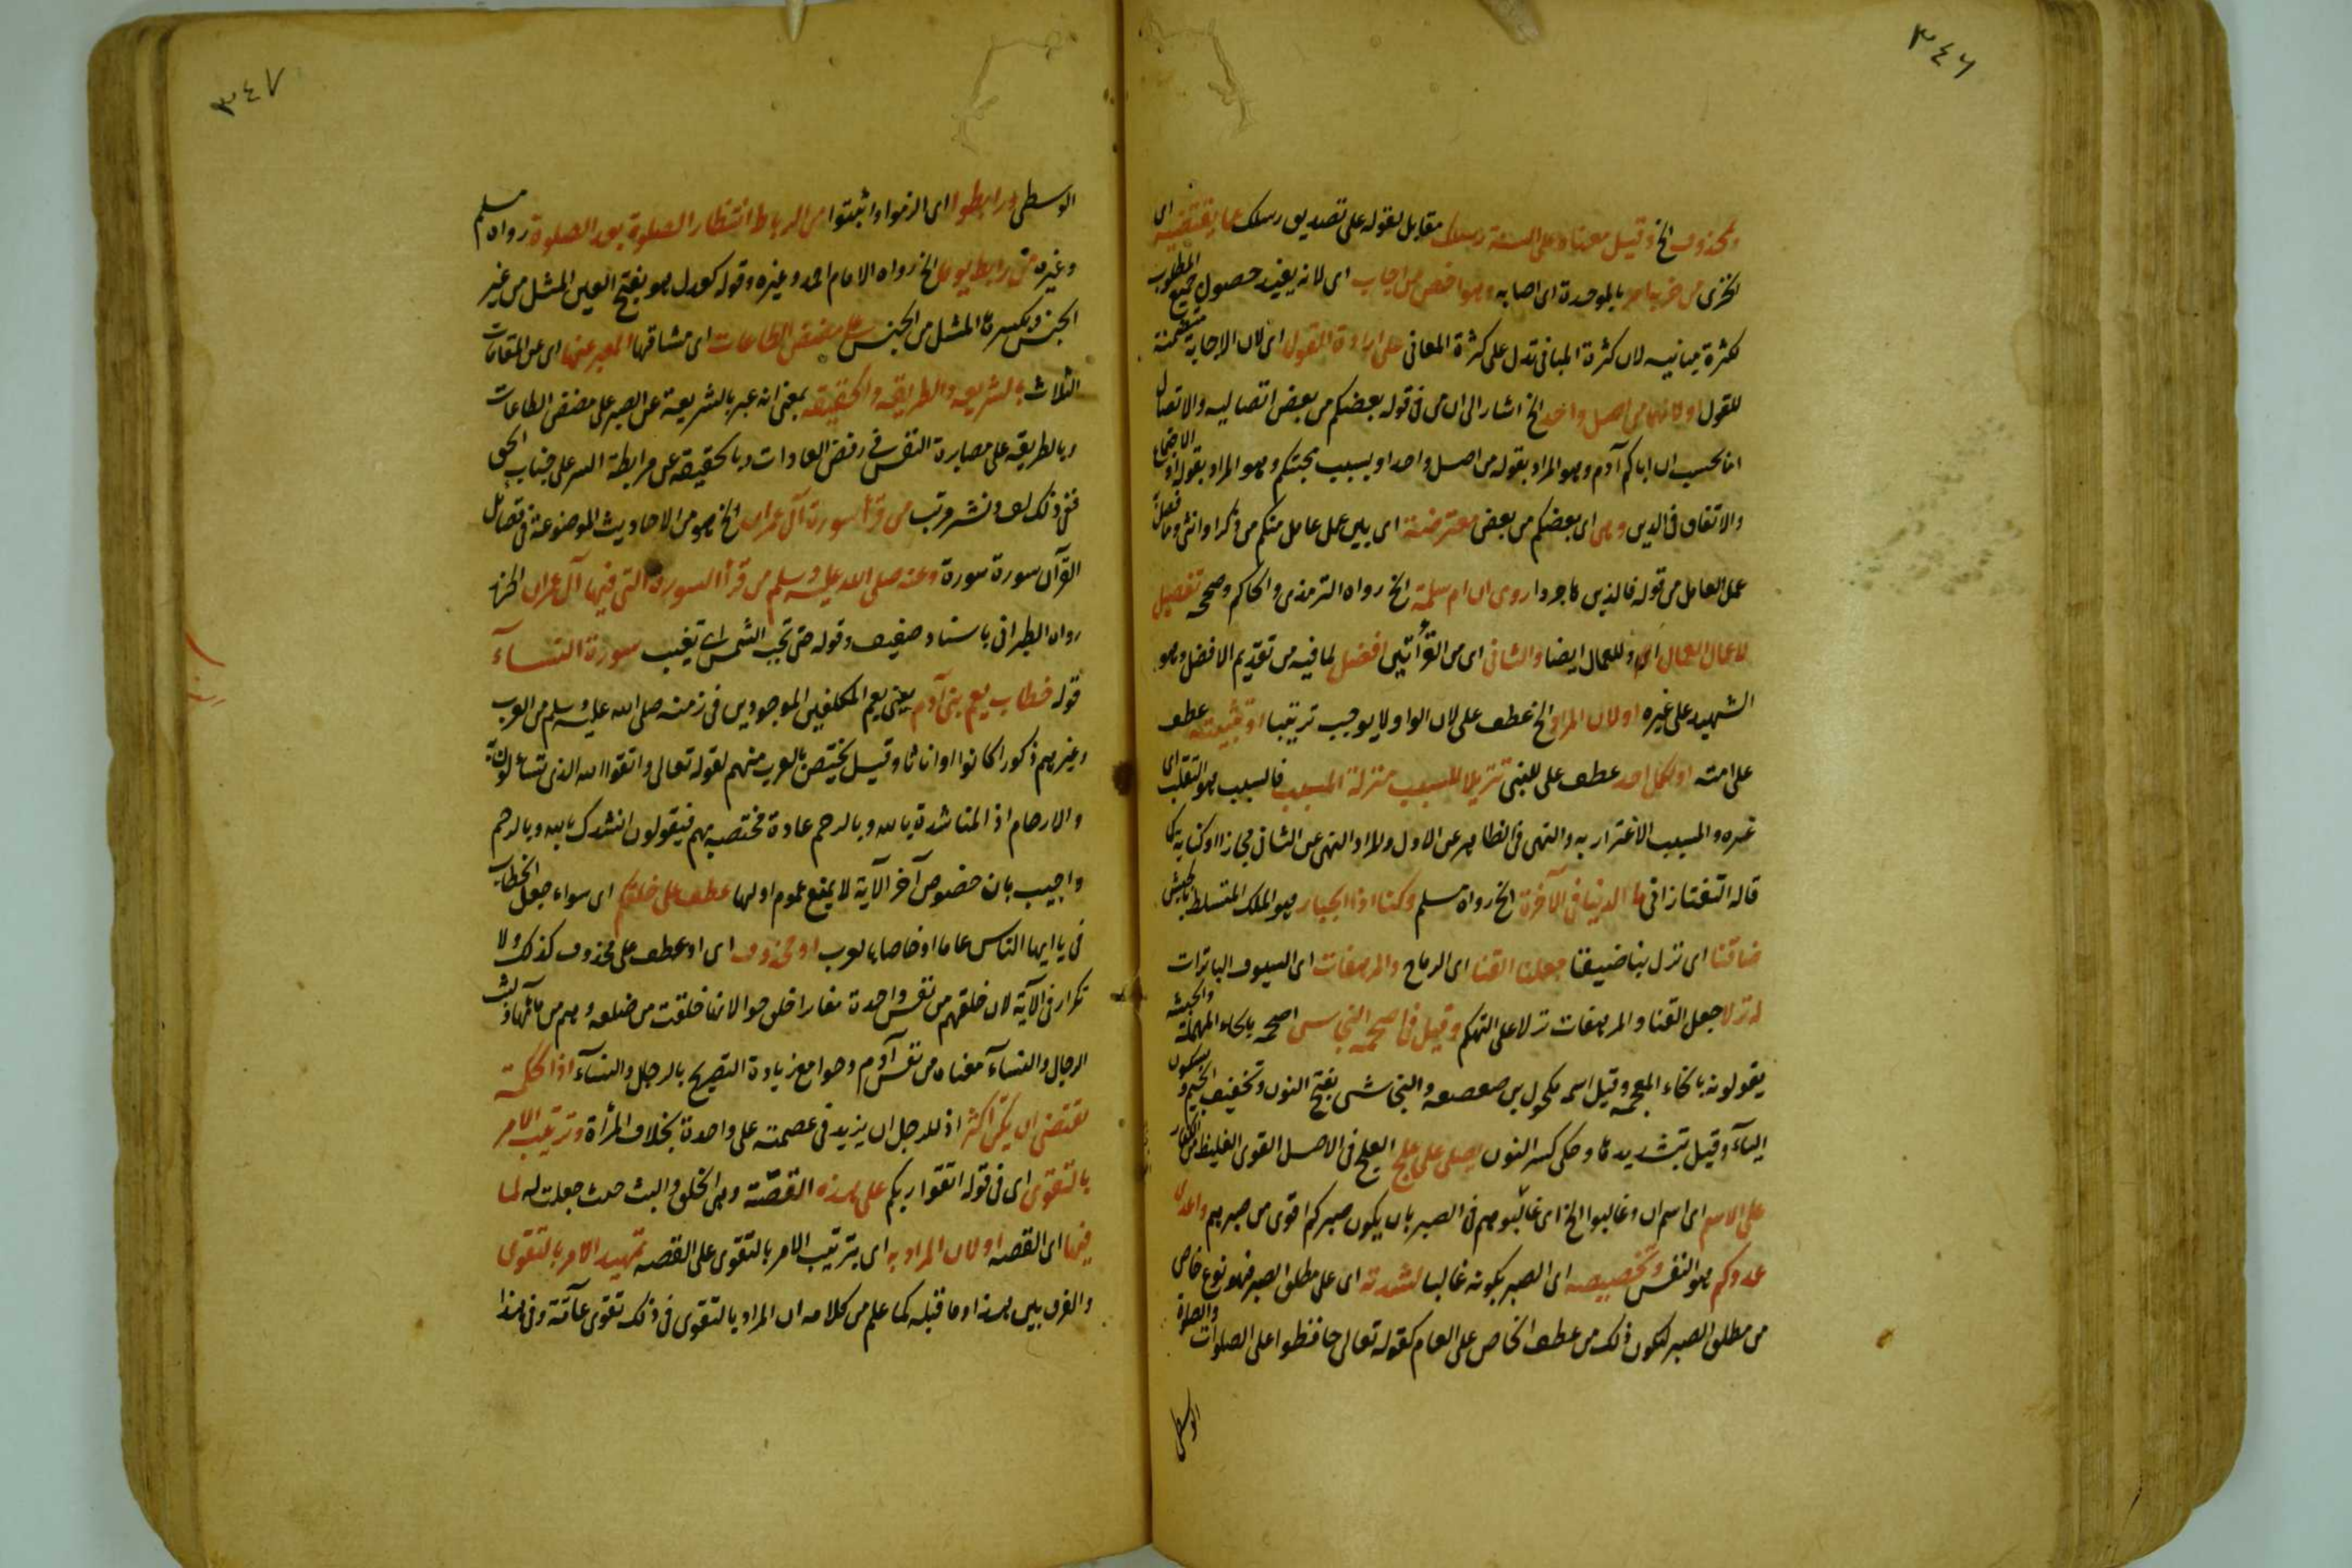 ٣٤٦
ومحذوف الخ وقيل معناه على السنة رسلك مقابل لقوله على تصديق رسلك عما يقتضيه اى
الخزى من حزبه امر بالموحدة اى اصابه وهو اخص من اجاب اى لانه يفيد حصول جميع المطلوب
لكثرة مبانيه لان كثرة المبانى تدل على كثرة المعانى على ارادة القول اى لان الاجابة متضمنة
للقول او لانهما من اصل واحد الخ اشار الى ان من فى قوله بعضكم من بعض اتصاليه والاتصال
اما بحسب ان اباكم آدم وهو المراد بقوله من اصل واحد او بسبب محبتكم وهو المراد بقوله او الاجتماع
والاتفاق فى الدين وهى اى بعضكم من بعض معترضة اى بين عمل عامل منكم من ذكر او انثى وما فصل
عمل العامل من قوله فالذين هاجروا روى ان ام سلمة الخ رواه الترمذى والحاكم وصححه تفصيل
لاعمال العمال اى وللعمال ايضا والثانى اى من القرأتين افضل لما فيه من تقديم الافضل وهو
الشهيد على غيره او لان المراد الخ عطف على لان الواو لا يوجب ترتيبا او تثبيته عطف
على امته او لكل احد عطف على للنبى تنزيلا للسبب منزلة المسبب فالسبب هو التقلب اى
غره والمسبب الاغترار به والنهى فى الظاهر عن الاول والمراد النهى عن الثانى مجازا او كناية كما
قاله التفتازانى ما الدنيا فى الآخرة الخ رواه مسلم وكنا اذا الجبار وهو الملك المتسلط بالجيش
ضافنا اى نزل بنا ضيفا جعلنا القنا اى الرماح والمرهفات اى السيوف الباترات
له نزلا جعل القنا والمرهفات نزلا على التهكم وقيل فى اصحمه النجاشى اصحمه بالحاء المهملة والحبشة
يقولونه بالخاء المعجمه وقيل اسمه مكحول بن صعصعه والنجاشى بفتح النون وتخفيف الجيم وسكون
اليآء وقيل بتشديدها وحكى كسر النون يصلى على علج العلج فى الاصل القوى الغليظ من الكفار
على الاسم اى اسم ان وغالبوا الخ اى غالبوهم فى الصبر بان يكون صبركم اقوى من صبرهم واعدى
عدوكم هو النفس وتخصيصه اى الصبر بكونه غالبا لشدته اى على مطلق الصبر فهو نوع خاص
من مطلق الصبر ليكون ذلك من عطف الخاص على العام كقوله تعالى حافظوا على الصلوات والصلوة
الوسطى
٣٤٧
الوسطى ورابطوا اى الزموا واثبتوا من الرباط انتظار الصلوة بعد الصلوة رواه مسلم
وغيره من رابط يوما الخ رواه الامام احمد وغيره وقوله كعدل هو بفتح العين المثل من غير
الجنس وبكسرها المثل من الجنس على مضض الطاعات اى مشاقها المعبر عنها اى عن المقامات
الثلاث بالشريعه والطريقه والحقيقه بمعنى انه عبر بالشريعة عن الصبر على مضض الطاعات
وبالطريقه على مصابرة النفس فى رفض العادات وبالحقيقه عن مرابطة السر على جناب الحق
ففى ذلك لف ونشر مرتب من قرأ سورة آل عمران الخ هو من الاحاديث الموضوعة فى فضائل
القرآن سورة سورة وعنه صلى الله عليه وسلم من قرأ السورة التى فيها آل عمران الخ
رواه الطبرانى باسناد ضعيف وقوله حتى تجب الشمس اى تغيب سورة النسآء
قوله خطاب يعم بنى آدم يعنى يعم المكلفين الموجودين فى زمنه صلى الله عليه وسلم من العرب
وغيرهم ذكورا كانوا او اناثا وقيل يختص بالعرب منهم لقوله تعالى واتقوا الله الذى تسآءلون به
والارحام اذ المناشدة بالله وبالرحم عادة مختصه بهم فيقولون انشدك بالله وبالرحم
واجيب بان خصوص آخر الآية لا يمنع عموم اولها عطف على خلقكم اى سواء جعل الخطاب
فى يا ايها الناس عاما او خاصا بالعرب او محذوف اى او عطف على محذوف كذلك ولا
تكرار فى الآية لان خلقهم من نفس واحدة مغاير لخلق حوا لانها خلقت من ضلعه وهم من مآئهما وبث
الرجال والنسآء معناه من نفس آدم وحوا مع زيادة التصريح بالرجال والنسآء اذ الحكمة
تقتضى ان يكن اكثر اذ للرجل ان يزيد فى عصمته على واحدة بخلاف المرأة وترتيب الامر
بالتقوى اى فى قوله اتقوا ربكم على هذه القصّة وهى الخلق والبث حيث جعلت له لما
فيها اى القصه او لان المراد به اى بترتيب الامر بالتقوى على القصه تمهيد الامر بالتقوى
والفرق بين هذا وما قبله كما علم من كلامه ان المراد بالتقوى فى ذلك تقوى عآمة وفى هذا